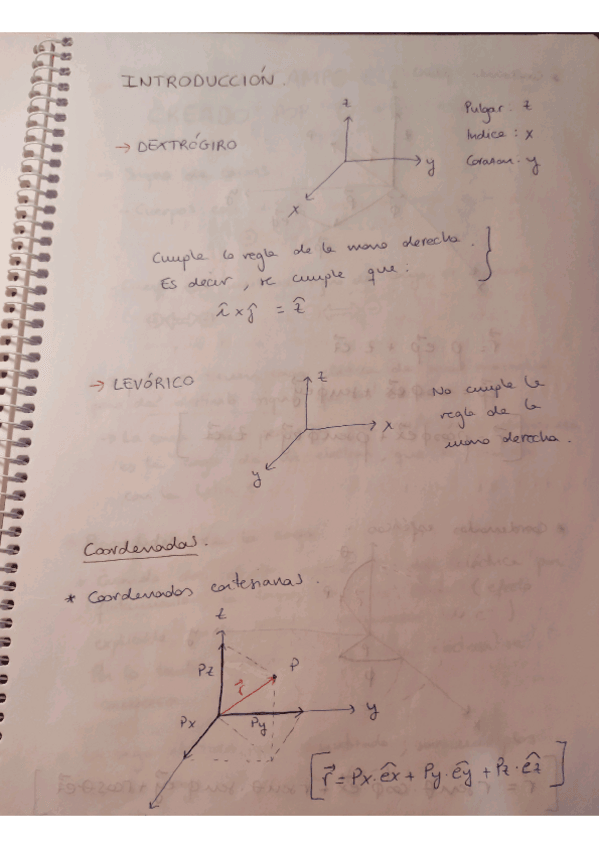 INTRODUCCIÓN.
→ DEXTRÓGIRO
z
y
x
Pulgar: z
Indice: x
Corazon: y
Cumple la regla de la mano derecha.
Es decir, se cumple que:
î × ĵ = ẑ
→ LEVÓRICO
z
x
y
No cumple la
regla de la
mano derecha.
Coordenadas.
* Coordenadas cartesianas.
z
Pz
P
r⃗
Px
Py
y
[r⃗ = Px·êx + Py·êy + Pz·êz]